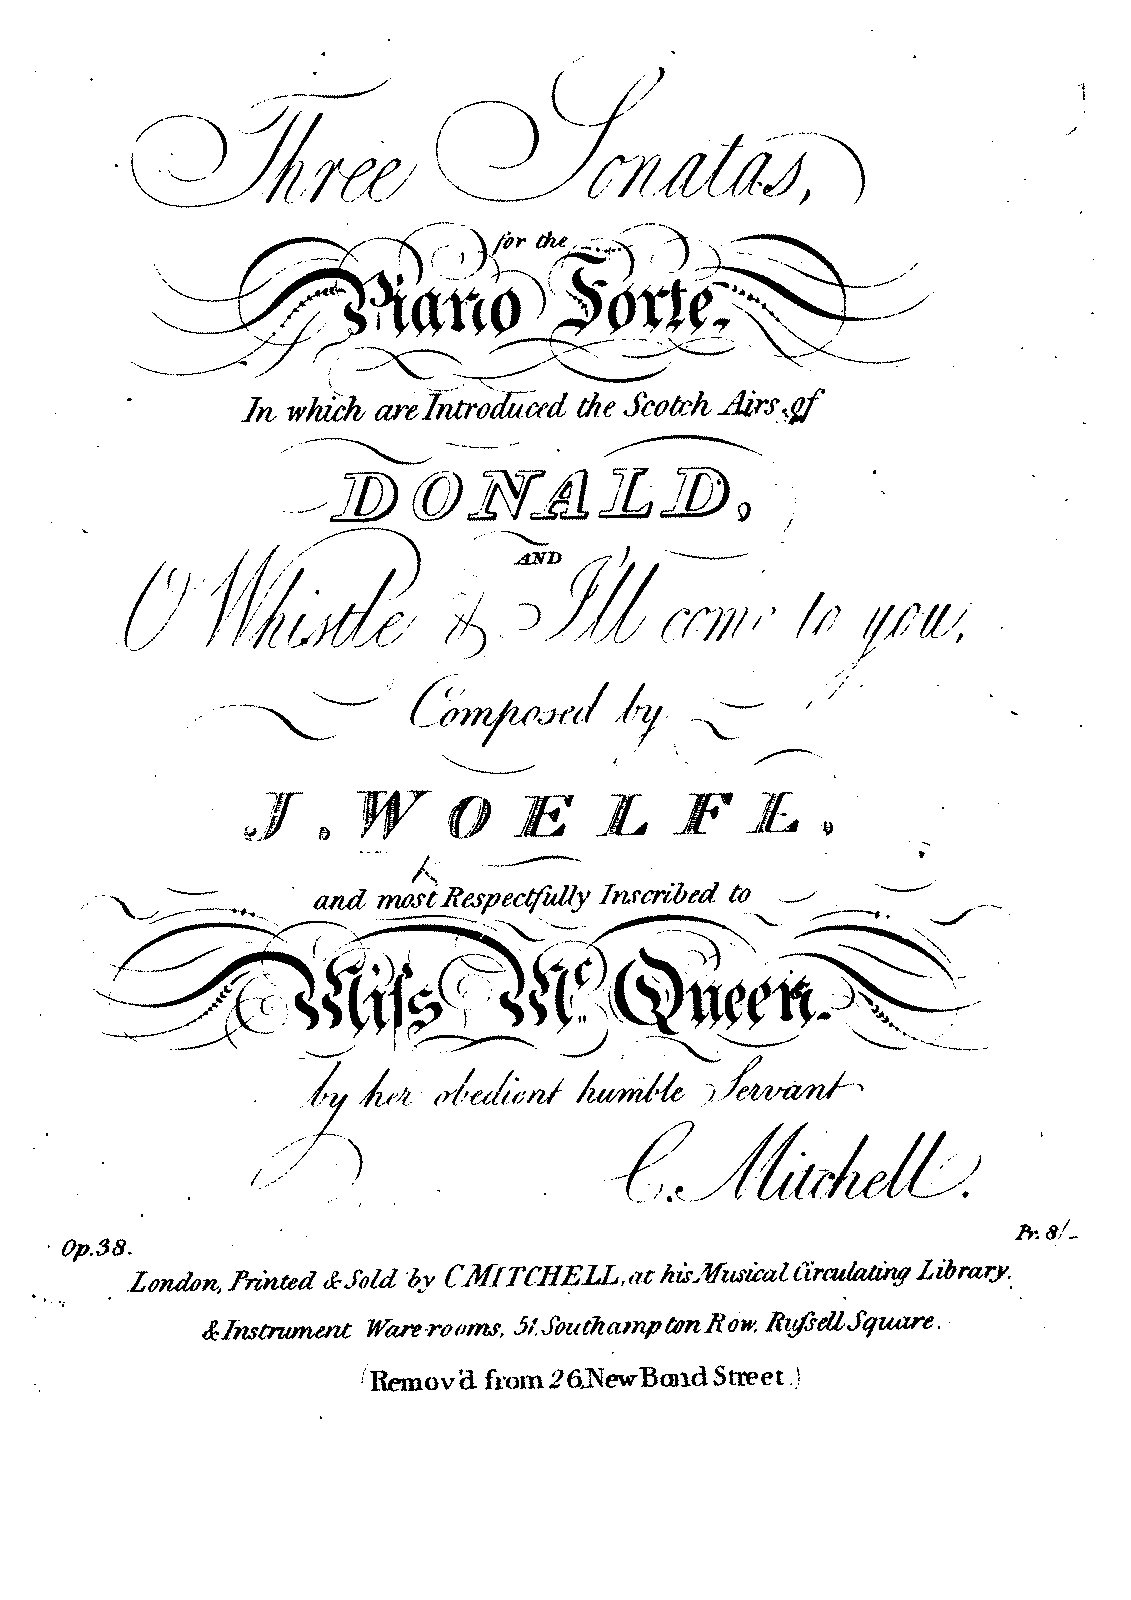 Three Sonatas,
for the
Piano Forte.
In which are Introduced the Scotch Airs of
DONALD,
AND
O Whistle & I'll come to you,
Composed by
J. WOELFL.
and most Respectfully Inscribed to
Miſs Mc. Queen.
by her obedient humble Servant
C. Mitchell.
Op.38.
Pr. 8/-
London, Printed & Sold by C MITCHELL, at his Musical Circulating Library.
& Instrument Ware-rooms, 51, Southampton Row, Ruſsell Square.
(Remov'd from 26, New Bond Street.)